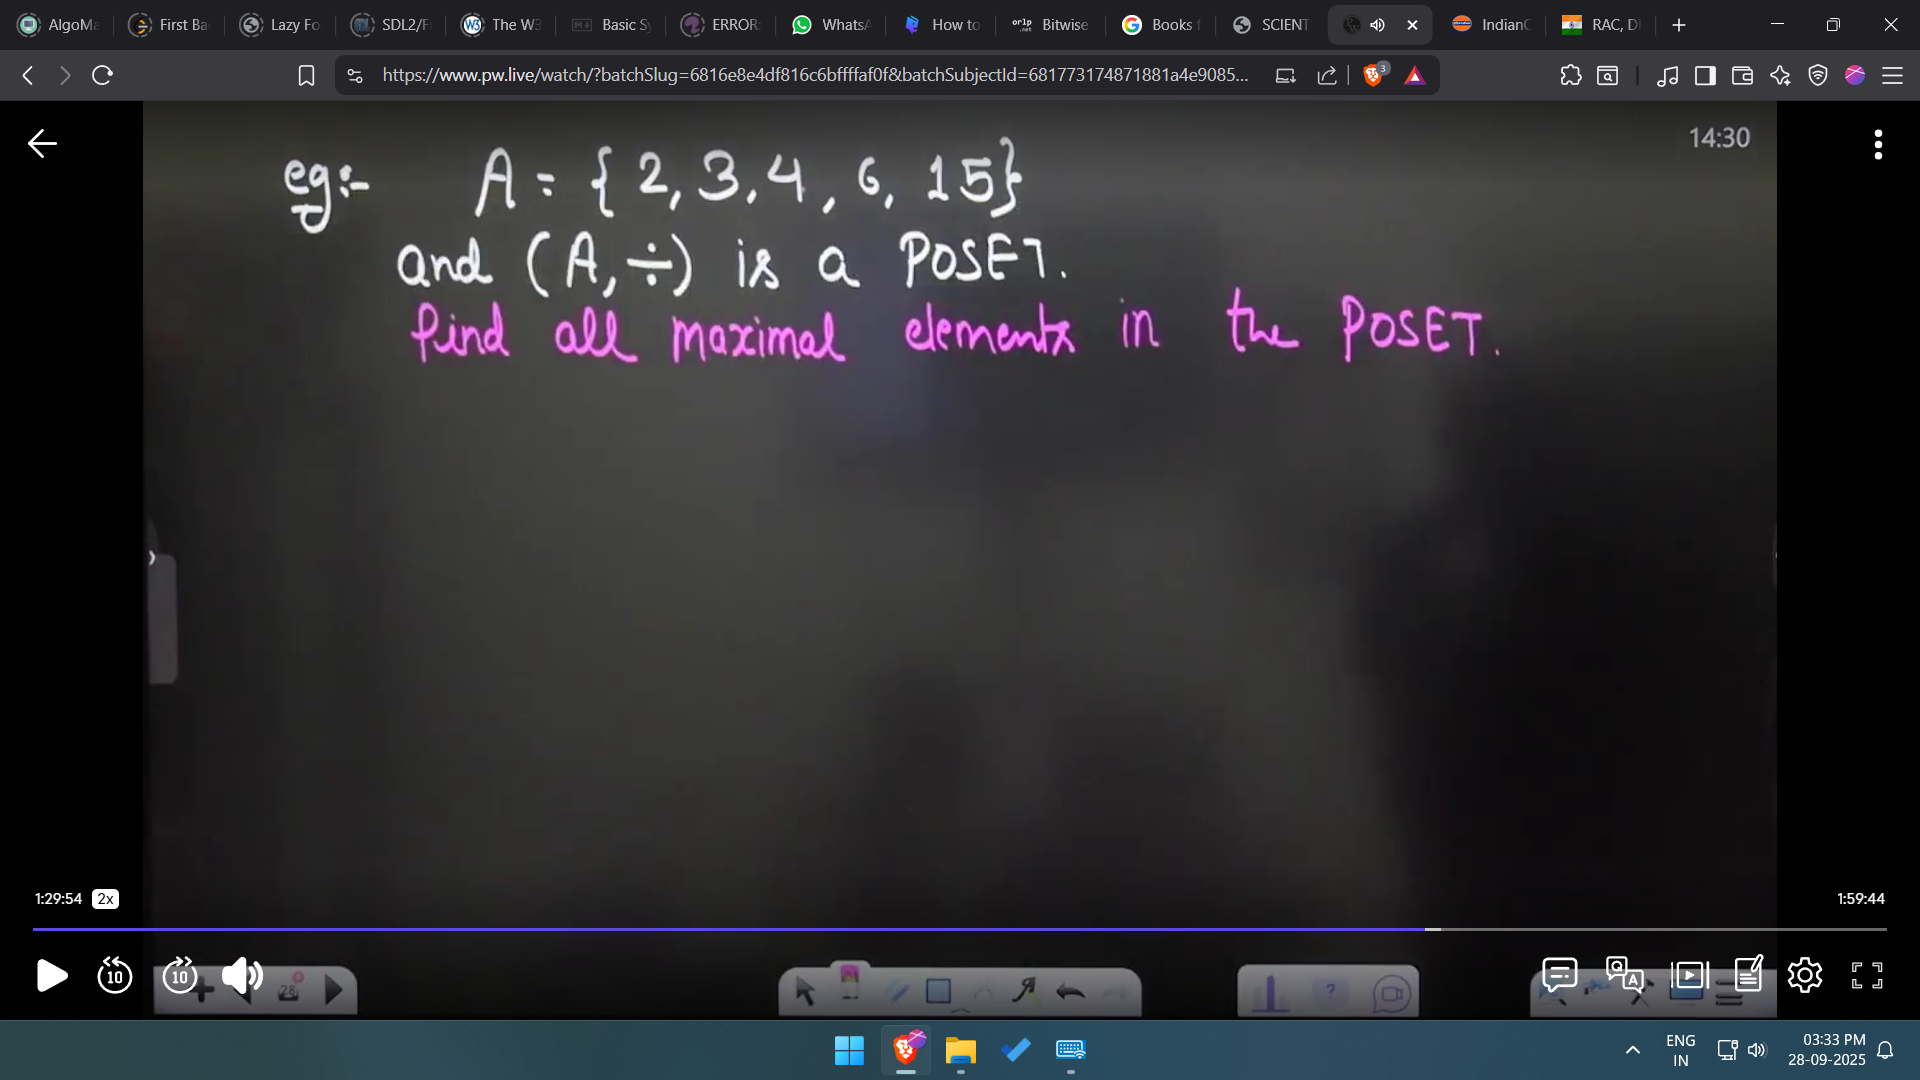 AlgoMa
First Ba
Lazy Fo
SDL2/F
The W3
Basic Sy
ERROR:
WhatsA
How to
Bitwise
Books f
SCIENT
IndianO
RAC, D
https://www.pw.live/watch/?batchSlug=6816e8e4df816c6bffffaf0f&batchSubjectId=681773174871881a4e9085...
3
14:30
eg:- A = { 2, 3, 4, 6, 15}
and (A, ÷) is a POSET.
find all maximal elements in the POSET.
1:29:54 2x
1:59:44
10
10
28
?
ENG
IN
03:33 PM
28-09-2025